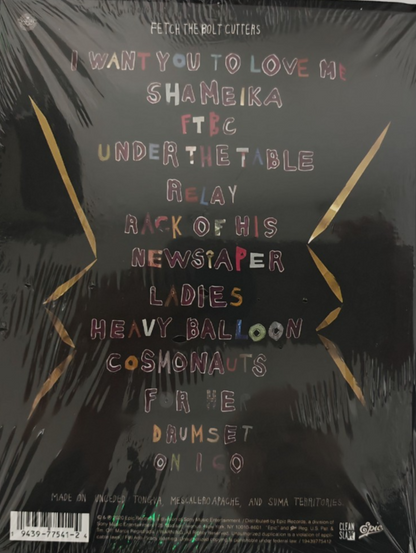 FETCH THE BOLT CUTTERS
I WANT YOU TO LOVE ME
SHAMEIKA
FTBC
UNDER THE TABLE
RELAY
RACK OF HIS
NEWSPAPER
LADIES
HEAVY BALLOON
COSMONAUTS
FOR HER
DRUMSET
ON I GO
MADE ON UNCEDED TONGVA, MESCALERO APACHE, AND SUMA TERRITORIES.
9439-77541-2 4
CLEAN
SLATE
Epic